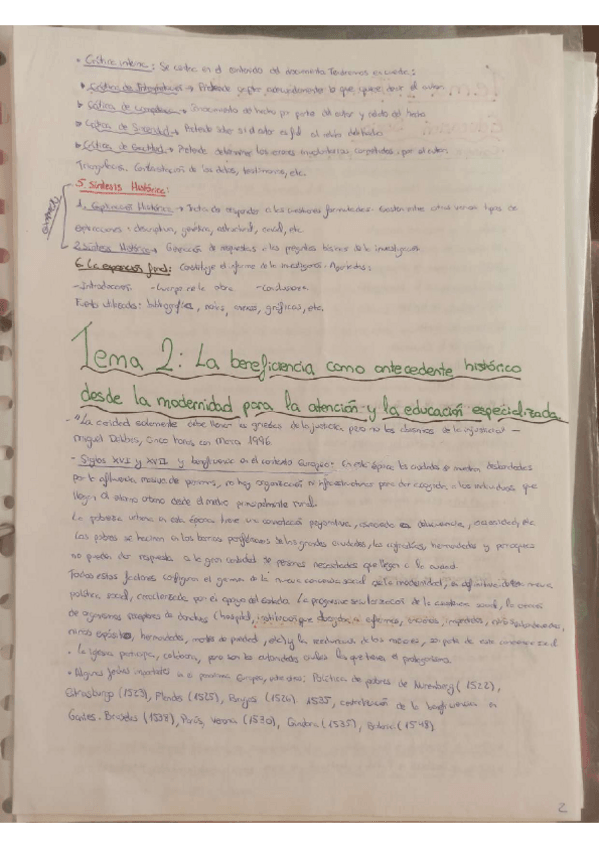 • Crítica interna: Se centra en el contenido del documento. Tendremos en cuenta:
• Crítica de Interpretación → Pretende captar adecuadamente lo que quiere decir el autor.
• Crítica de Competencia → Conocimiento del hecho por parte del autor y relato del hecho.
• Crítica de Sinceridad → Pretende saber si el autor es fiel al relato del hecho.
• Crítica de Exactitud → Pretende determinar los errores involuntarios cometidos por el autor.
Contrastación de los datos, testimonios, etc.
5. Síntesis Histórica:
1. Explicación Histórica → Trata de responder a las cuestiones formuladas. Existen entre otras varios tipos de
explicaciones: descriptiva, genética, estructural, causal, etc.
2. Síntesis Histórica → de respuestas a las preguntas básicas de la investigación.
6. La exposición final: Constituye el informe de la investigación. Apartados:
- Introducción. - Cuerpo de la obra. - Conclusiones.
utilizados: bibliografía, notas, anexos, gráficas, etc.
Tema 2: La beneficiencia como antecedente histórico
desde la modernidad para la atención y la educación especializada
- "La caridad solamente debe llenar las grietas de la justicia pero no los abismos de la injusticia" -
Miguel Delibes, Cinco horas con Mario. 1996.
- Siglos XVI y XVII y beneficencia en el contexto Europeo: En esta época las ciudades se muestran desbordadas
por la afluencia masiva de personas, no hay organización ni infraestructuras para dar acogida a los individuos que
llegan al entorno urbano desde el medio principalmente rural.
La pobreza urbana en esta época tiene una connotación peyorativa, asociada a delincuencia, ociosidad, etc.
Los pobres se hacinan en los barrios periféricos de las grandes ciudades, las cofradías, hermandades y parroquias
no pueden dar respuesta a la gran cantidad de personas necesitadas que llegan a la ciudad.
Todos estos factores configuran el germen de la nueva conciencia social de la modernidad, en definitiva de la nueva
política social, caracterizada por el apoyo del estado. La progresiva secularización de la asistencia social, la creación
de organismos receptores de donativos (hospital, instituciones que acogían a enfermos, ancianos, impedidos,
niños expósitos, hermandades, montes de piedad, etc) y la de los mismos, son parte de esta conciencia social
• La Iglesia participa, colabora, pero son las autoridades civiles las que tienen el protagonismo.
• Algunas fechas importantes a a Europa, entre otras: Política de pobres de Nuremberg (1522),
Estrasburgo (1523), Flandes (1525), Brujas (1526). 1535, centralización de la beneficencia en
Gantes. Bruselas (1538), París, Verona (1530), Ginebra (1535), (1548)
2